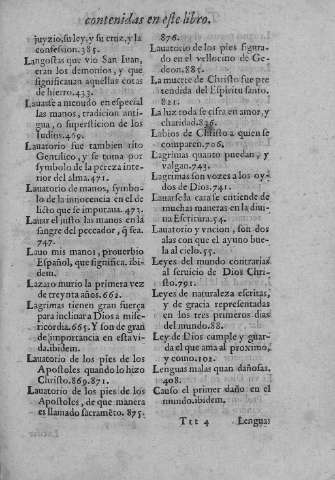 contenidas en este libro.
juyzio, su ley, y su cruz, y la
confession. 385.
Langostas que vio San Iuan,
eran los demonios, y que
significauan aquellas cotas
de hierro. 433.
Lauarse a menudo en especial
las manos, tradicion anti-
gua, o supersticion de los
Iudios. 469.
Lauatorio fue tambien rito
Gentilico, y se toma por
symbolo de la pureza inte-
rior del alma. 471.
Lauatorio de manos, symbo-
lo de la innocencia en el de
lito que se imputaua. 473.
Lauar el justo las manos en la
sangre del peccador, q̃ sea.
747.
Lauo mis manos, prouerbio
Español, que significa. ibi-
dem.
Lazaro murio la primera vez
de treynta años. 662.
Lagrimas tienen gran fuerça
para inclinar a Dios a mise-
ricordia. 665. Y son de gran
de importancia en esta vi-
da. ibidem.
Lauatorio de los pies de los
Apostoles quando lo hizo
Christo. 869. 871.
Lauatorio de los pies de los
Apostoles, de que manera
es llamado sacramẽto. 875.
876.
Lauatorio de los pies figura-
do en el vellocino de Ge-
deon. 885.
La muerte de Christo fue pre
tendida del Espiritu santo.
821.
La luz toda se cifra en amor, y
charidad. 836.
Labios de Christo a quien se
comparen. 706.
Lagrimas quanto puedan, y
valgan. 743.
Lagrimas son vozes a los oy-
dos de Dios. 741.
Lauarse la cara se entiende de
muchas maneras en la diui-
na Escritura. 54.
Lauatorio y vncion, son dos
alas con que el ayuno bue-
la al cielo. 55.
Leyes del mundo contrarias
al seruicio de Dios Chri-
sto. 791.
Leyes de naturaleza escritas,
y de gracia representadas
en los tres primeros dias
del mundo. 88.
Ley de Dios cumple y guar-
da el que ama al proximo,
y como. 102.
Lenguas malas quan dañosas.
408.
Causo el primer daño en el
mundo. ibidem.
Ttt 4 Lenguas